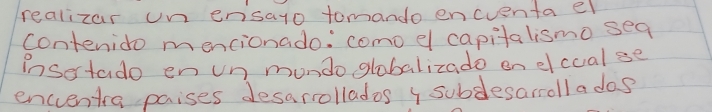 realizar un ensayo tomando encuenta el
contenido mencionado: como el capitalismo sea
insertado en un mundo globalizado en el cual se
encuentra paises desarrollados y subdesarrollados